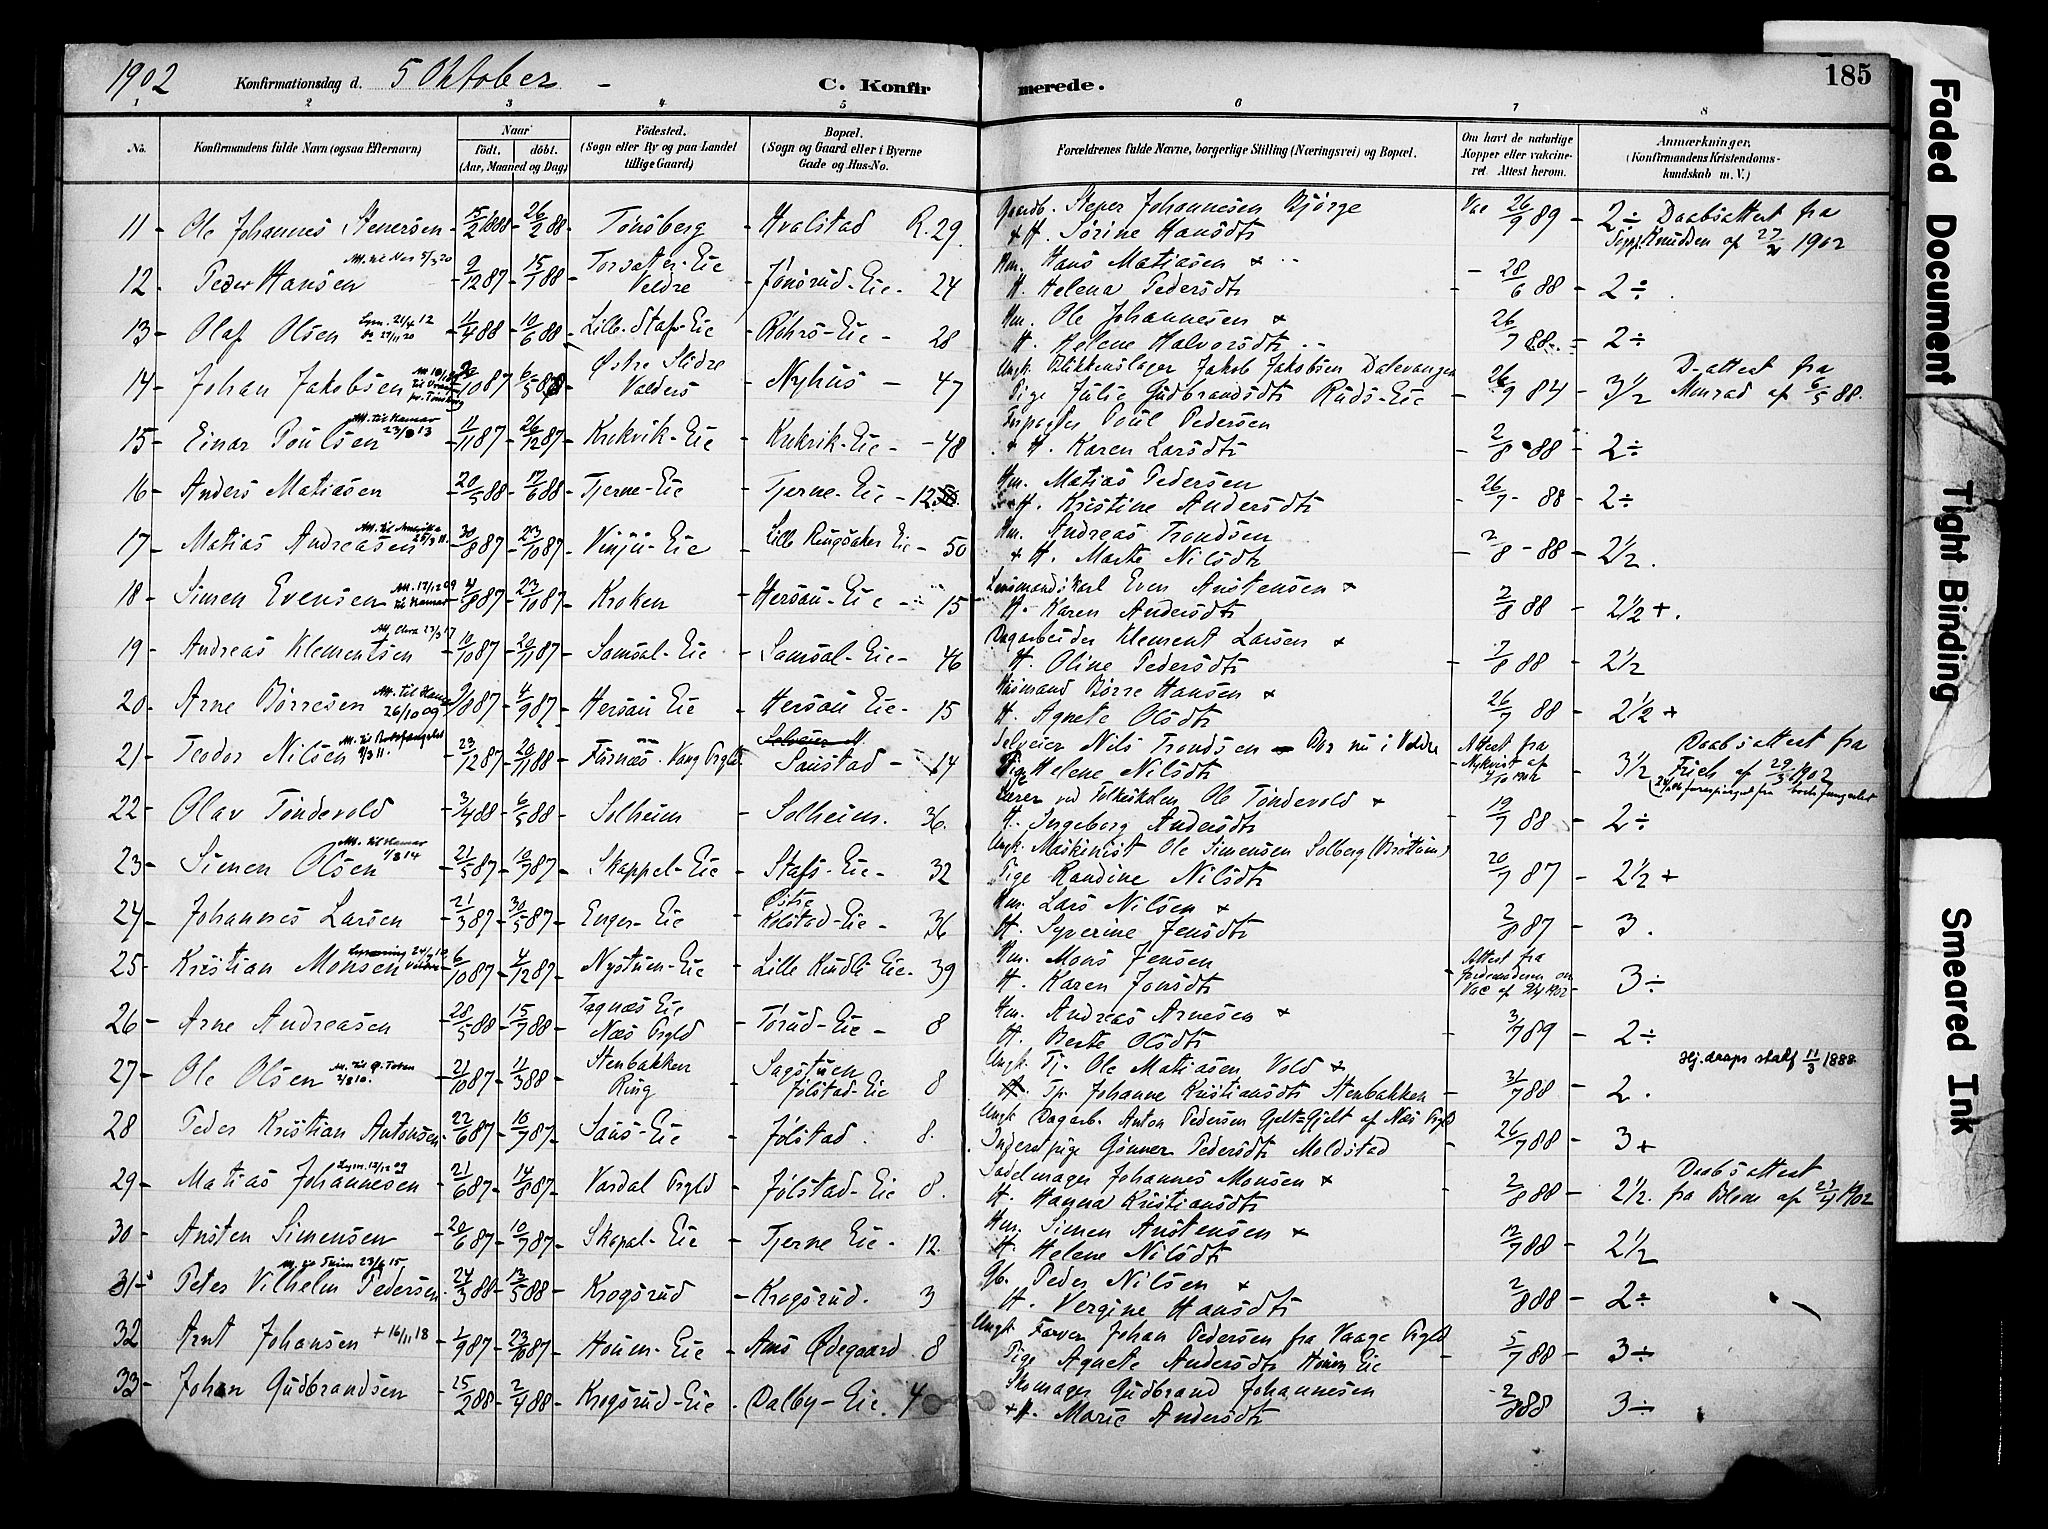 1902 Konfirmationsdag d. 5 Oktober – C. Konfirmerede. 185
1 2 3 4 5 6 7 8
No. Konfirmandens fulde Navn (ogsaa Efternavn) Naar født. døbt. (Aar, Maaned og Dag) Fødested. (Sogn eller By og paa Landet tillige Gaard) Bopæl. (Sogn og Gaard eller i Byerne Gade og Hus-No. Forældrenes fulde Navne, borgerlige Stilling (Næringsvei) og Bopæl. Om havt de naturlige Kopper eller vakcineret Attest herom. Anmærkninger. (Konfirmandens Kristendomskundskab m. V.)
11 – Ole Johannes Stenersen 15/2 1888 – 26/2 88 – Tönsberg – Hvalstad R. 29. Gaardb. Stener Johannesen Bjørge Vac 26/9 89 – 2 ÷ Daabsattest fra
+ H. Sörine Hansdtr 1902
12 – Peder Hansen 9/12 87 – 15/7 88 – Veldre – Jönsrud-Eie – 24 Hm. Hans Matiasen +
H. Helena Pedersdtr – 28/6 88 – 2 ÷
13 – Olaf Olsen 1/4 88 – 10/6 88 – Lille-Staf-Eie – Röhrs-Eie – 28 Hm. Ole Johannesen +
H. Helene Halvorsdtr 26/7 88 – 2 ÷
14 – Johan Jakobsen 10 87 – 6/5 88 Østre Slidre Valders – Nyhus – 47 Ungk. Blikkenslager Jakob Jakobsen Dalevangen
Pige Julie Gudbrandsdtr Ruds-Eie – 26/9 84 – 3 1/2 D-attest fra Monrad af 6/5 88.
15 – Einar Poulsen Att. til Hamar 23/8 13 11/11 87 – 26/12 87 – Krekvik-Eie – Krekvik-Eie – 48 Forpagter Poul Pedersen
+ H. Karen Larsdtr – 2/8 88 – 2 ÷
16 – Anders Matiasen – 20/5 88 – 17/6 88 – Tjerne-Eie – Tjerne-Eie – 12 Hm. Matias Pedersen
H. Kristine Andersdtr – 26/7 88 – 2 ÷
17 – Matias Andreasen Att. til Amerika – 30/8 87 – 23/10 87 – Vinju-Eie – Lille Ringsaker Eie – 50 Hm. Andreas Trondsen
+ H. Marte Nilsdtr – 2/8 88 – 2 1/2.
18 – Simen Evensen Att. 17/12 09 til Hamar – 4/8 87 – 23/10 87 – Kroken – Hersau-Eie – 15 Lensmandskarl Even Anstensen +
H. Karen Andersdtr 2/8 88 – 2 1/2 +.
19 – Andreas Klementsen 10/10 87 – 20/11 87 – Samsal-Eie – Samsal-Eie – 46 Dagarbeider Klement Larsen +
H. Oline Pedersdtr – 2/8 88 – 2 1/2
20 – Arne Börresen Att. til Hamar 26/10 09 8 87 – 4/9 87 – Hersau Eie – Hersau Eie – 15 Husmand Börre Hansen +
H. Agnete Olsdtr 26/7 88 – 2 1/2 +
21 – Teodor Nilsen – 23/12 87 – 20/11 88 – Furnæs Vang Prgld – Saustad – 14 Selveier Nils Trondsen – Bor nu i Veldre
Pige Helene Nilsdtr Attest fra Nykvist af 1902 – 3 1/2 Daabsattest fra Friis af 29/3 1902
22 – Olav Töndevold – 3/4 88 – 6/5 88 – Solheim – Solheim. 36. Lærer ved Folkeskolen Ole Töndevold +
H. Ingeborg Andersdtr – 19/7 88 – 2 ÷
23 – Simen Olsen Att. til Hamar 1/8 14 – 21/5 87 – 10/7 87 – Skappel-Eie – Stafs-Eie – 32 Ungk. Maskinist Ole Simensen Solberg (Brøttum)
Pige Randine Nilsdtr 20/7 87 – 2 1/2 +
24 – Johannes Larsen – 21/3 87 – 30/5 87 – Enger-Eie – Østre Kolstad-Eie – 36 Hm. Lars Nilsen +
H. Syverine Jensdtr 2/8 87 – 3.
25 – Kristian Monsen – 6/10 87 – 4/12 87 – Nystuen-Eie – Lille Kindli Eie – 39 Hm. Mons Jensen
H. Karen Jonsdtr Attest fra Jordemoderen om Vac af 1902 – 3 ÷
26 – Arne Andreasen – 20/5 88 – 15/7 88 – Tagnæs Eie Næs Prgld – Torud-Eie – 8 Hm. Andreas Arnesen +
H. Berte Olsdtr – 3/7 89 – 2 ÷
27 – Ole Olsen – 21/10 87 – 11/3 88 – Stenbakken Ring – Sagstuen Jølstad-Eie 8 Ungk. Tj. Ole Matiasen Vold +
Tp. Johanne Kristiansdtr Stenbakken – 31/7 88 – 2. Hj. daaps stadf 11/3 1888
28 – Peder Kristian Antonsen – 22/6 87 – 10/7 87 – Saus-Eie – Jølstad. 8. Ungk Dagarb. Anton Pedersen Gjelt af Næs Prgld
Inderstpige Gunner Pedersdtr Moldstad – 26/7 88 – 3 +
29 – Matias Johannesen – 21/6 87 – 14/8 87 – Vardal Prgld – Jølstad-Eie 8. Sadelmager Johannes Monsen +
H. Hanna Kristiansdtr – 2/8 88 – 2 1/2. Daabsattest fra af 23/4 1902
30 – Ansten Simensen – 20/6 87 – 10/7 87 – Skopal-Eie – Tjerne Eie – 12. Hm. Simen Anstensen +
H. Helene Nilsdtr – 12/7 88 – 2 1/2
31 – Peter Vilhelm Pedersen – 24/3 88 – 13/5 88 – Krogsrud – Krogsrud. 3 Gb. Peder Nilsen +
H. Vergine Hansdtr – 2/8 88 – 2 ÷
32 Arnt Johansen + 16/11 18 – 1/9 87 – 23/10 87 – Houm-Eie – Ams Ødegaard 8 Ungk. Farver Johan Pedersen fra Vaage Prgld
Pige Agnete Andersdtr Houm Eie – 5/7 88 – 3 ÷
33 – Johan Gudbrandsen – 15/2 88 – 2/4 88 – Krogsrud-Eie – Dalby-Eie. 4 Skomager Gudbrand Johannesen
+ H. Marie Andersdtr – 2/8 88 – 3 ÷
Faded Document
Tight Binding
Smeared Ink